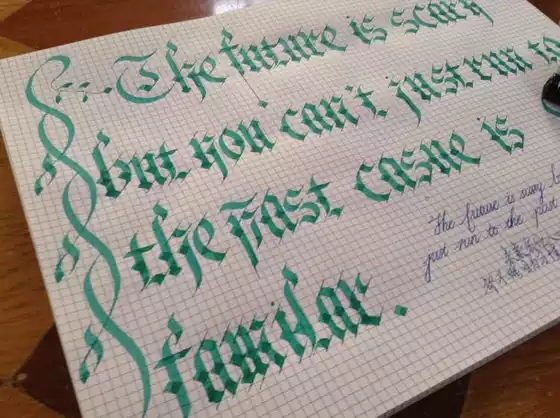 The future is scary
but you can't just run to
the Past casue is
familar.
The future is scary
just run to the past